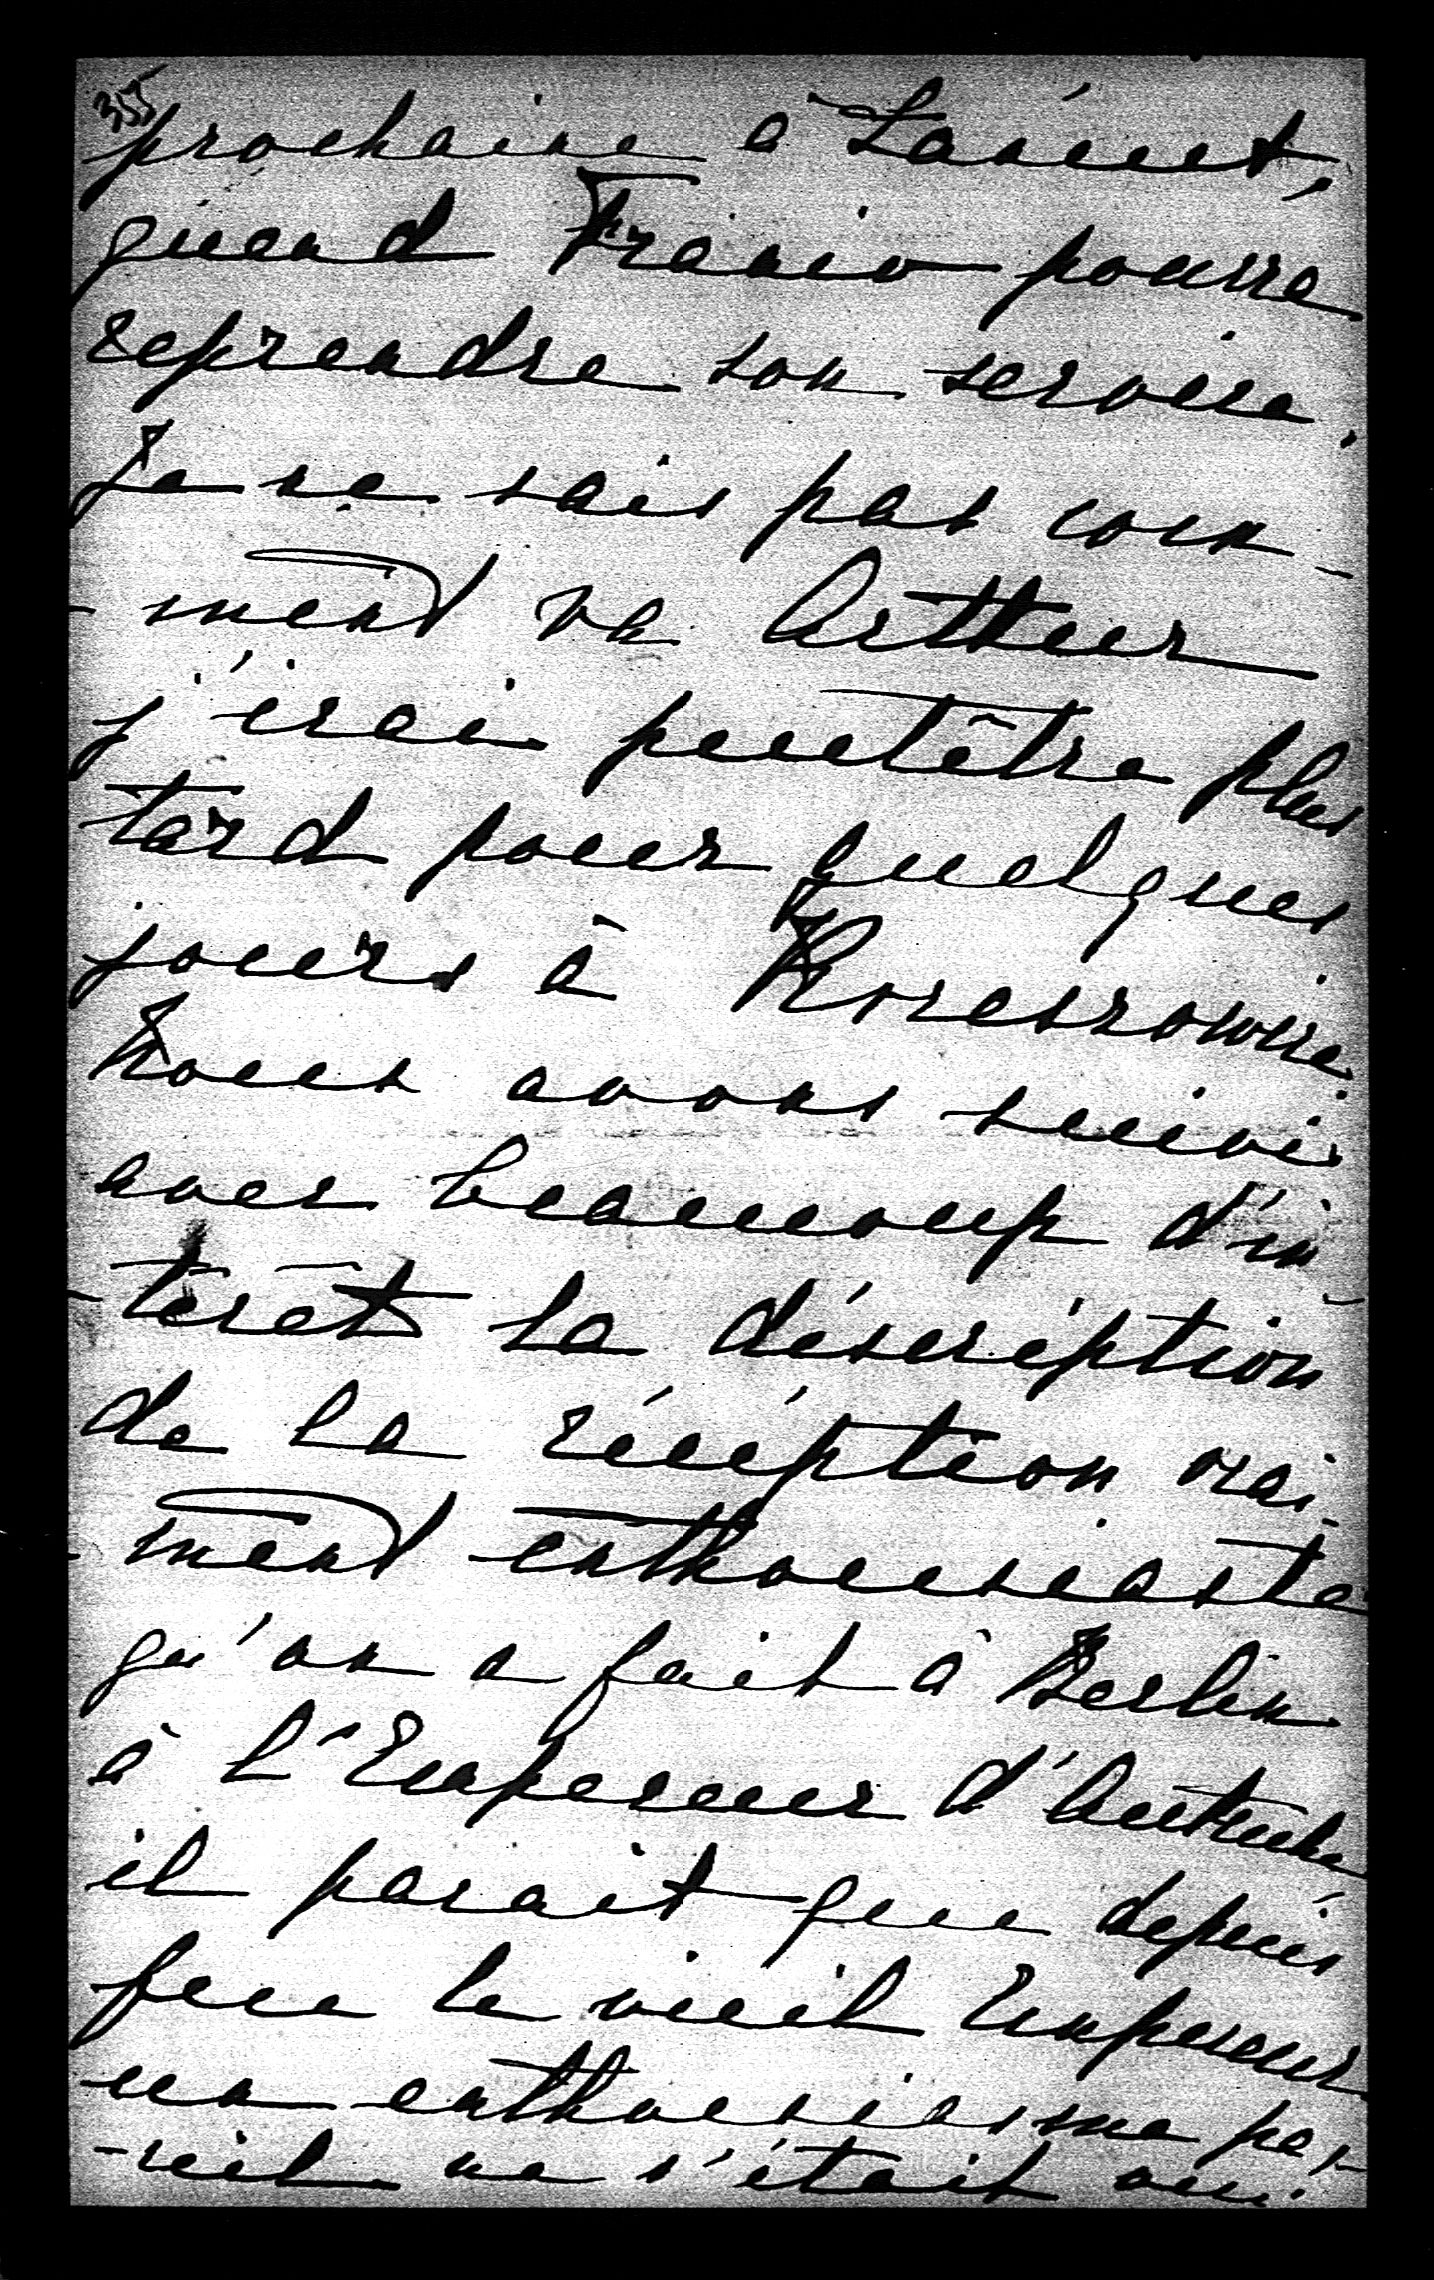 355
prochaine à Łańcut,
quand Franio pourra
reprendre son service.
Je ne sais pas com-
-ment va Arthur
j'irai peutêtre plus
tard pour quelques
jours à
Nous avons suivis
avec beaucoup d'in-
-térêt la déscription
de la récéption vrai-
-ment enthousiaste
qu'on a fait à Berlin
à l'Empereur d'Autriche
il parait que depuis
feue le vieil Empereur
un enthousiasme pa-
-reil ne s'était vui